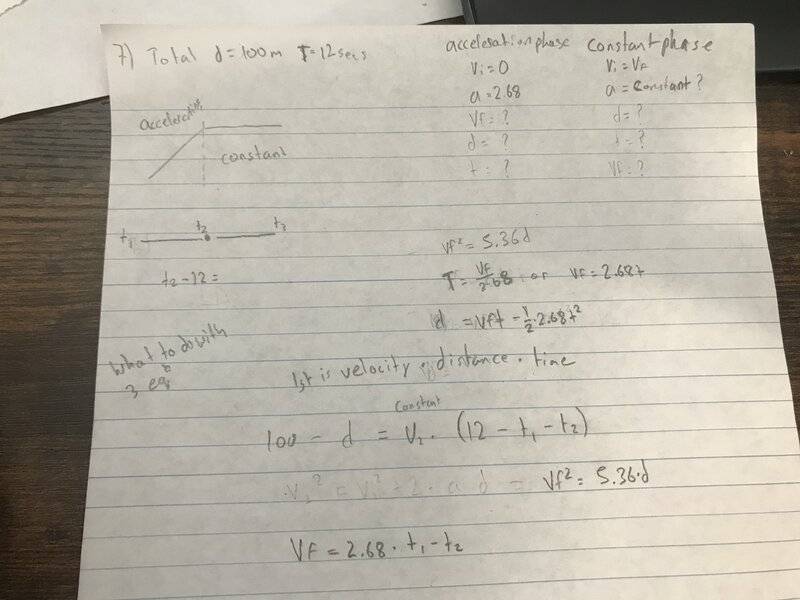 7) Total d = 100m T = 12 secs
acceleration phase
Vi = 0
a = 2.68
Vf = ?
d = ?
t = ?
Constant phase
Vi = VF
a = constant?
d = ?
t = ?
Vf = ?
acceleration
constant
t1 t2 t3
t2 - 12 =
Vf² = 5.36d
T = VF/2.68 or VF = 2.68t
d = Vft - 1/2 · 2.68t²
What to do with
3 eqs
1st is velocity · distance · time
constant
100 - d = V2 · (12 - t1 - t2)
V2² = Vi² + 2 · a d = Vf² = 5.36·d
VF = 2.68 · t1 - t2